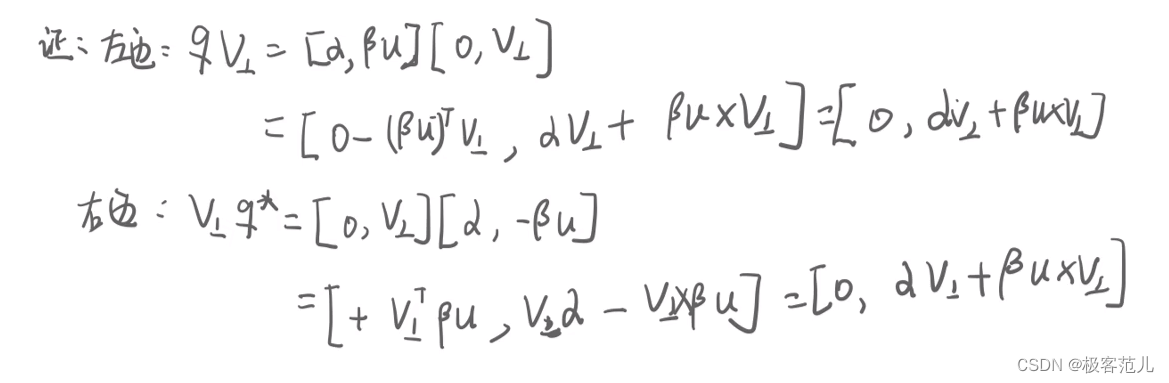 证：左边：qV⊥ = [α, βu][0, V⊥]
= [0-(βu)ᵀV⊥, αV⊥ + βu×V⊥] = [0, αV⊥+βu×V⊥]
右边：V⊥q* = [0, V⊥][α, -βu]
= [+ V⊥ᵀβu, V⊥α - V⊥×βu] = [0, αV⊥+βu×V⊥]
CSDN @极客范儿